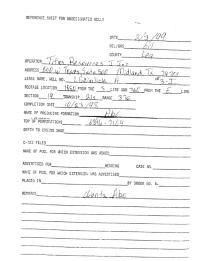 REFERENCE SHEET FOR UNDESIGNATED WELLS
DATE 2/9/99
OIL/GAS Oil
COUNTY Lea
OPERATOR Titan Resources I, Inc.
ADDRESS 500 W Texas Suite 500 Midland Tx 79701
LEASE NAME, WELL NO. A #3-I
FOOTAGE LOCATION 1650 FROM THE S LINE AND 330 FROM THE E LINE
SECTION 18 TOWNSHIP 21s RANGE 37e
COMPLETION DATE 10/23/98
NAME OF PRODUCING FORMATION Abo
TOP OF PERFORATIONS 6896-7164
DEPTH TO CASING SHOE
C-123 FILED
NAME OF POOL FOR WHICH EXTENSION WAS ASKED
ADVERTISED FOR HEARING CASE NO.
NAME OF POOL FOR WHICH EXTENSION WAS ADVERTISED
PLACED IN BY ORDER NO. R-
REMARKS Wants Abo